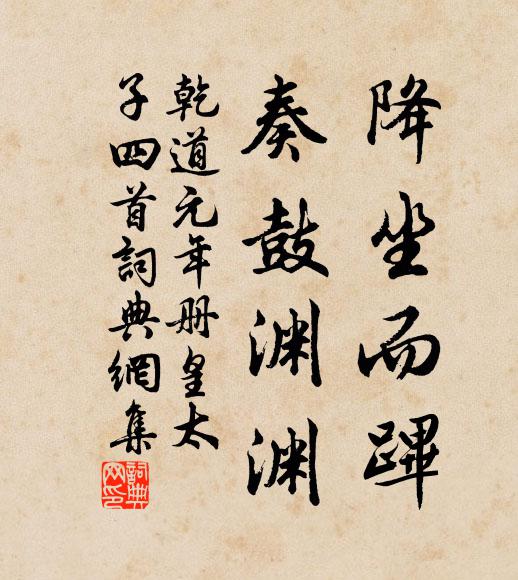 降坐而蹕
奏鼓渊渊
乾道元年册皇太
子四首詞典網集
詞典網印